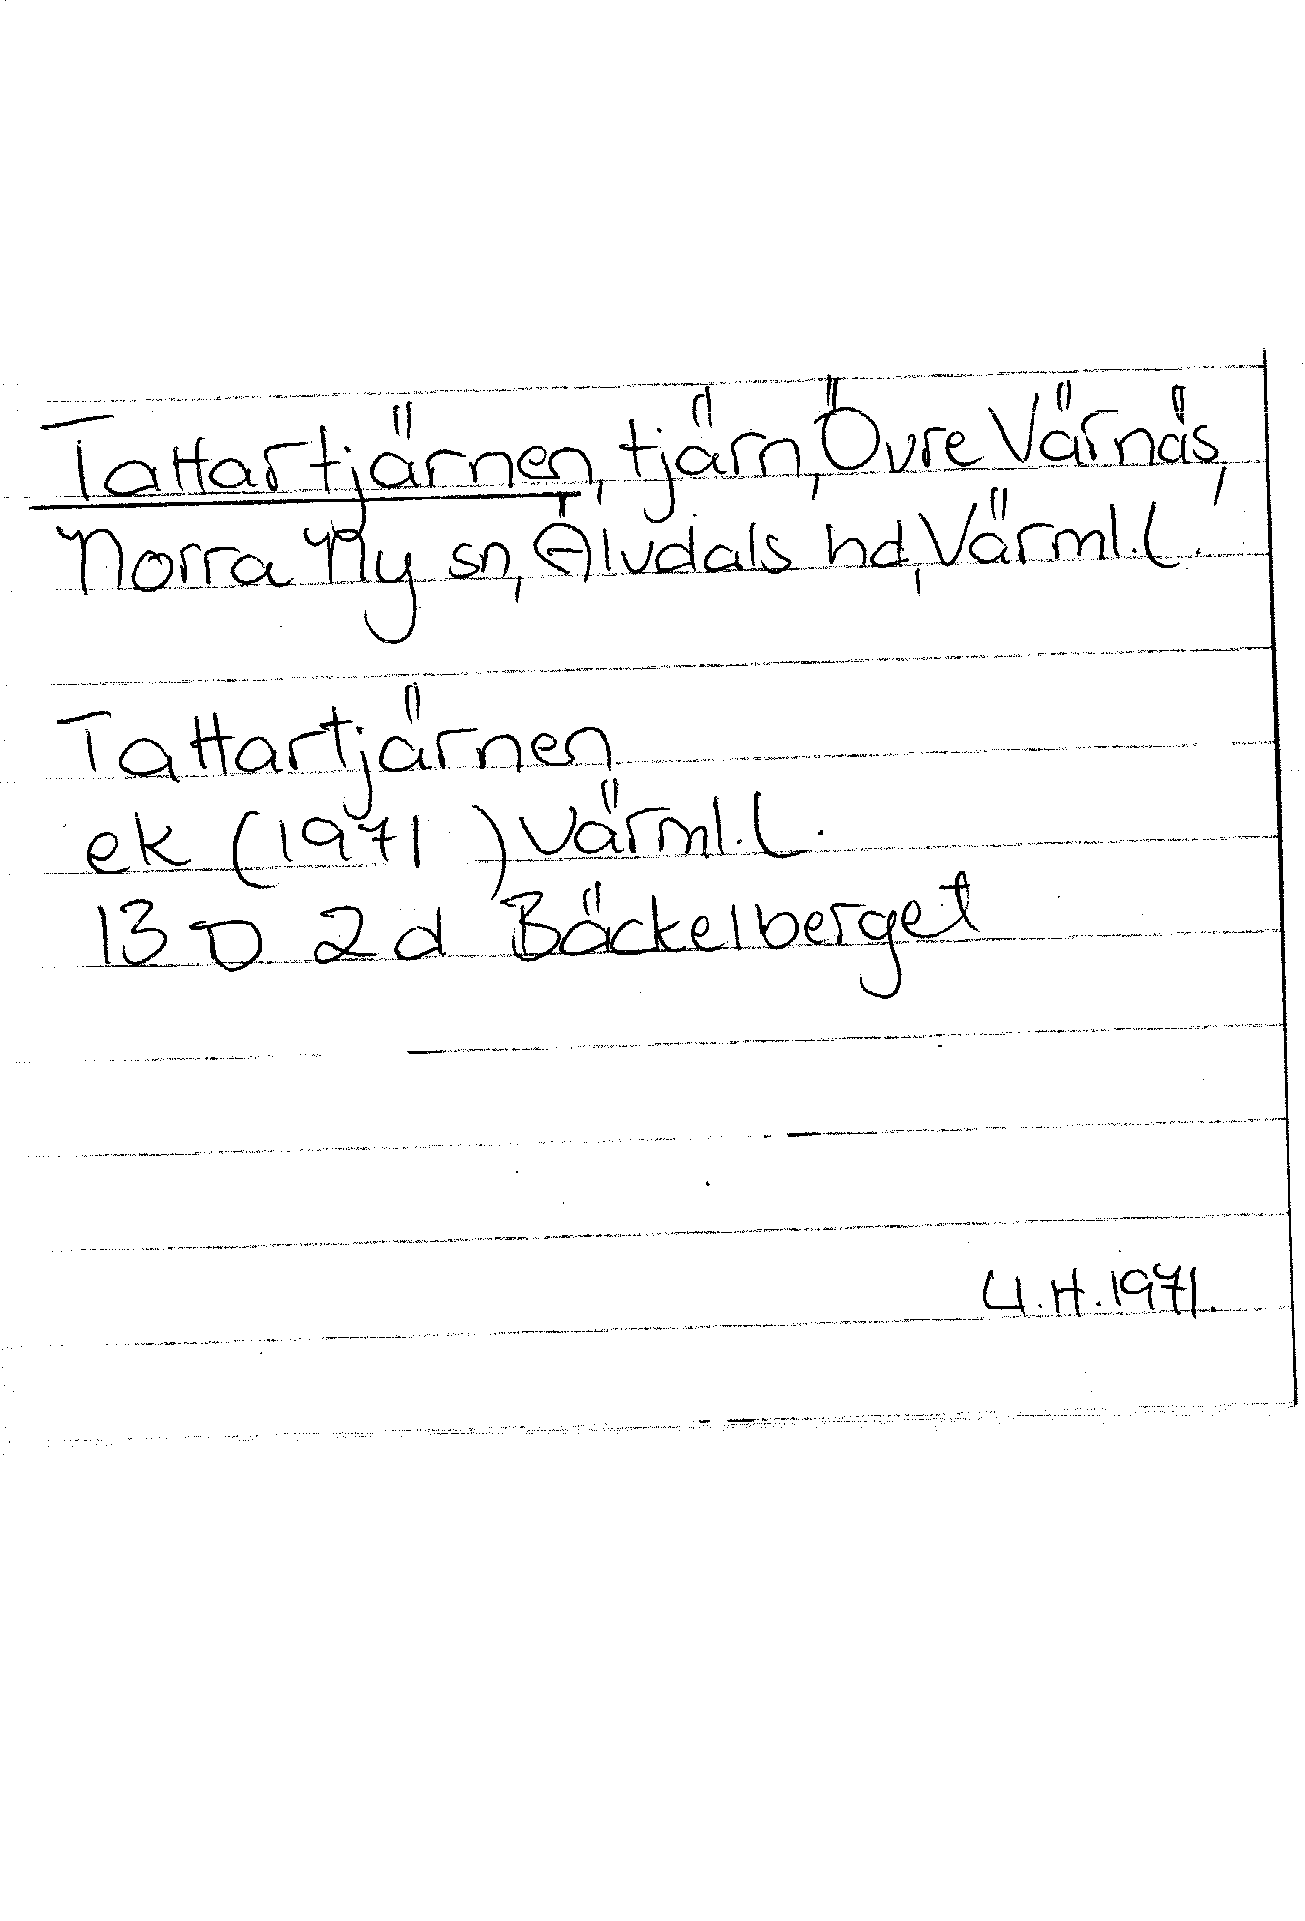 Tattartjärnen, tjärn, Övre Värnäs,
Norra Ny sn, Älvdals hd, Värml. l.
Tattartjärnen
ek (1971) Värml. l.
13 D 2d Bäckelberget
U.H. 1971.